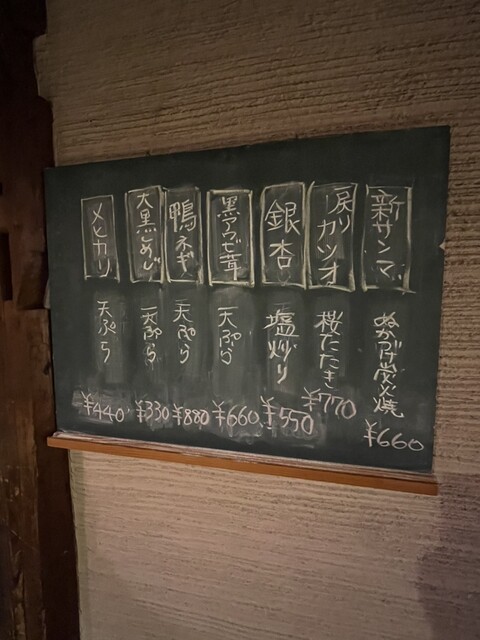 新サンマ
ぬか漬け炭火焼
¥660
戻りカツオ
桜たたき
¥770
銀杏
塩炒り
¥550
黒アワビ茸
天ぷら
¥660
鴨ネギ
天ぷら
¥880
大黒しめじ
天ぷら
¥330
メヒカリ
天ぷら
¥440